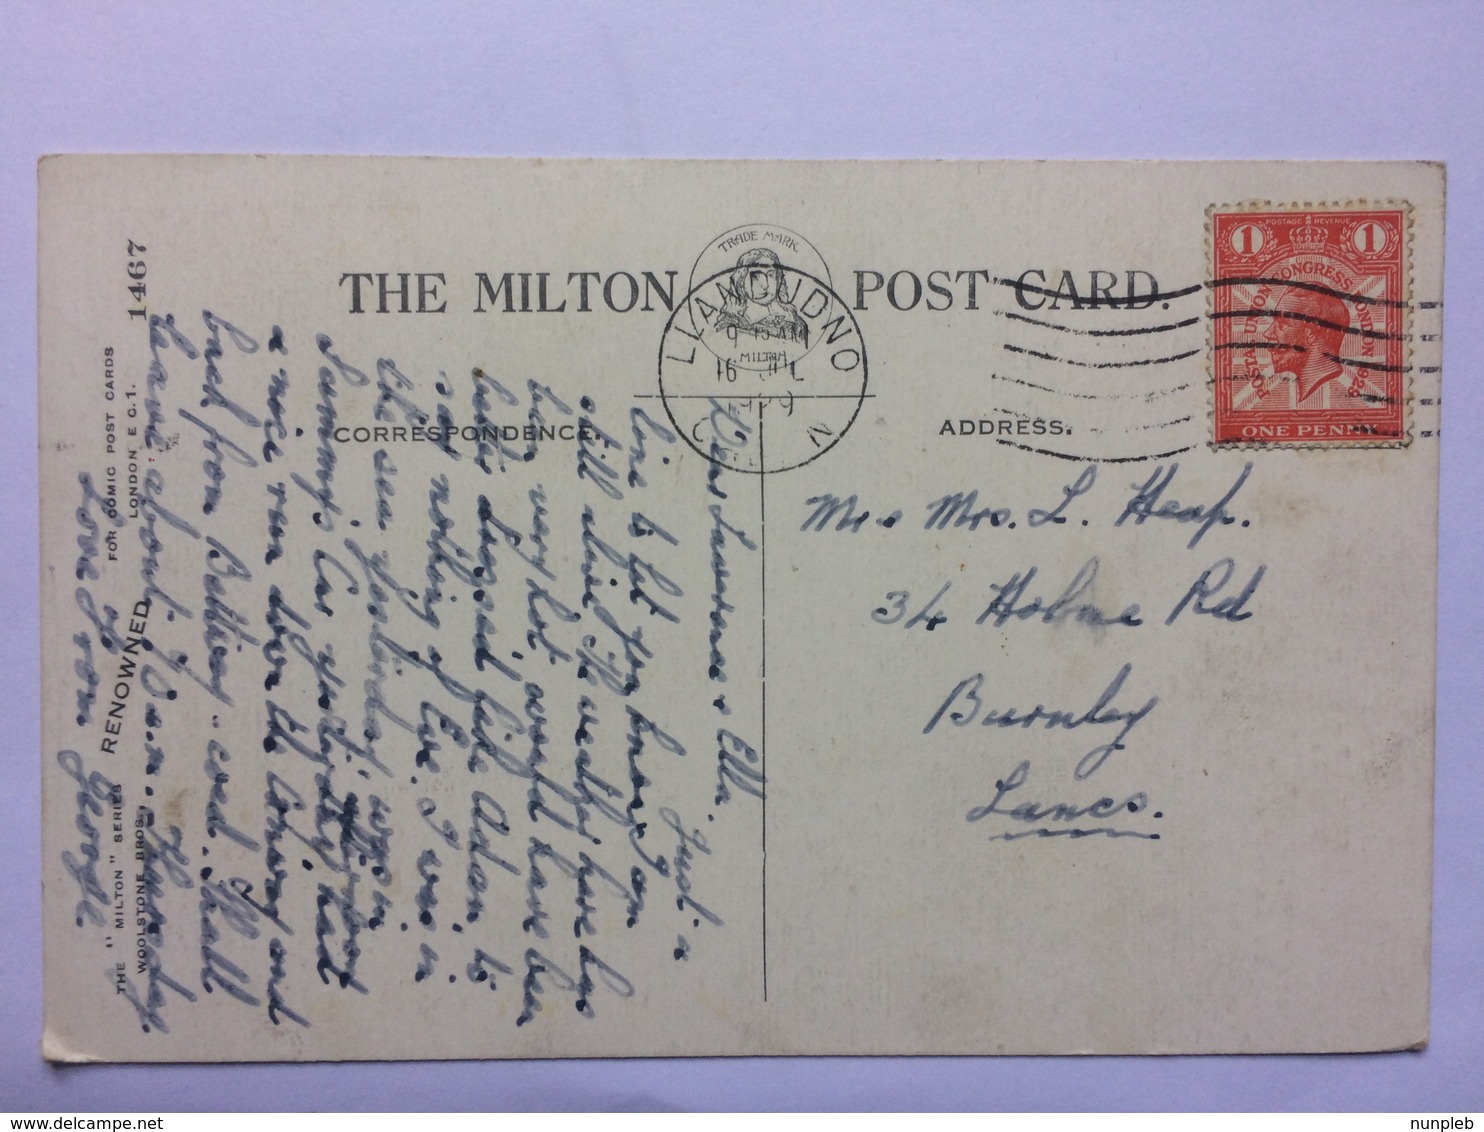 THE MILTON POST CARD.
TRADE MARK
MILTON
LLANDUDNO
9 15 AM
16 JUL
1929
POSTAGE REVENUE
1 1
POSTAL UNION CONGRESS LONDON 1929
ONE PENNY
CORRESPONDENCE.
ADDRESS.
Mr & Mrs. L. Heap.
34 Holme Rd
Burnley
Lancs.
Dear Lawrence & Ella.
Just a
line to let you know I am
still alive. The weather here has
been very hot, would have been
better dressed like Adam, to
say nothing of Eve. I was in
the sea yesterday, was in
Sammy's Car yesterday had
a nice run down the Conway and
back from Bettws-coed. Shall
leave about 9 a.m. Thursday.
Love from George
THE "MILTON" SERIES
WOOLSTONE BROS.,
RENOWNED
FOR COMIC POST CARDS
LONDON E C 1.
1467
nunpleb